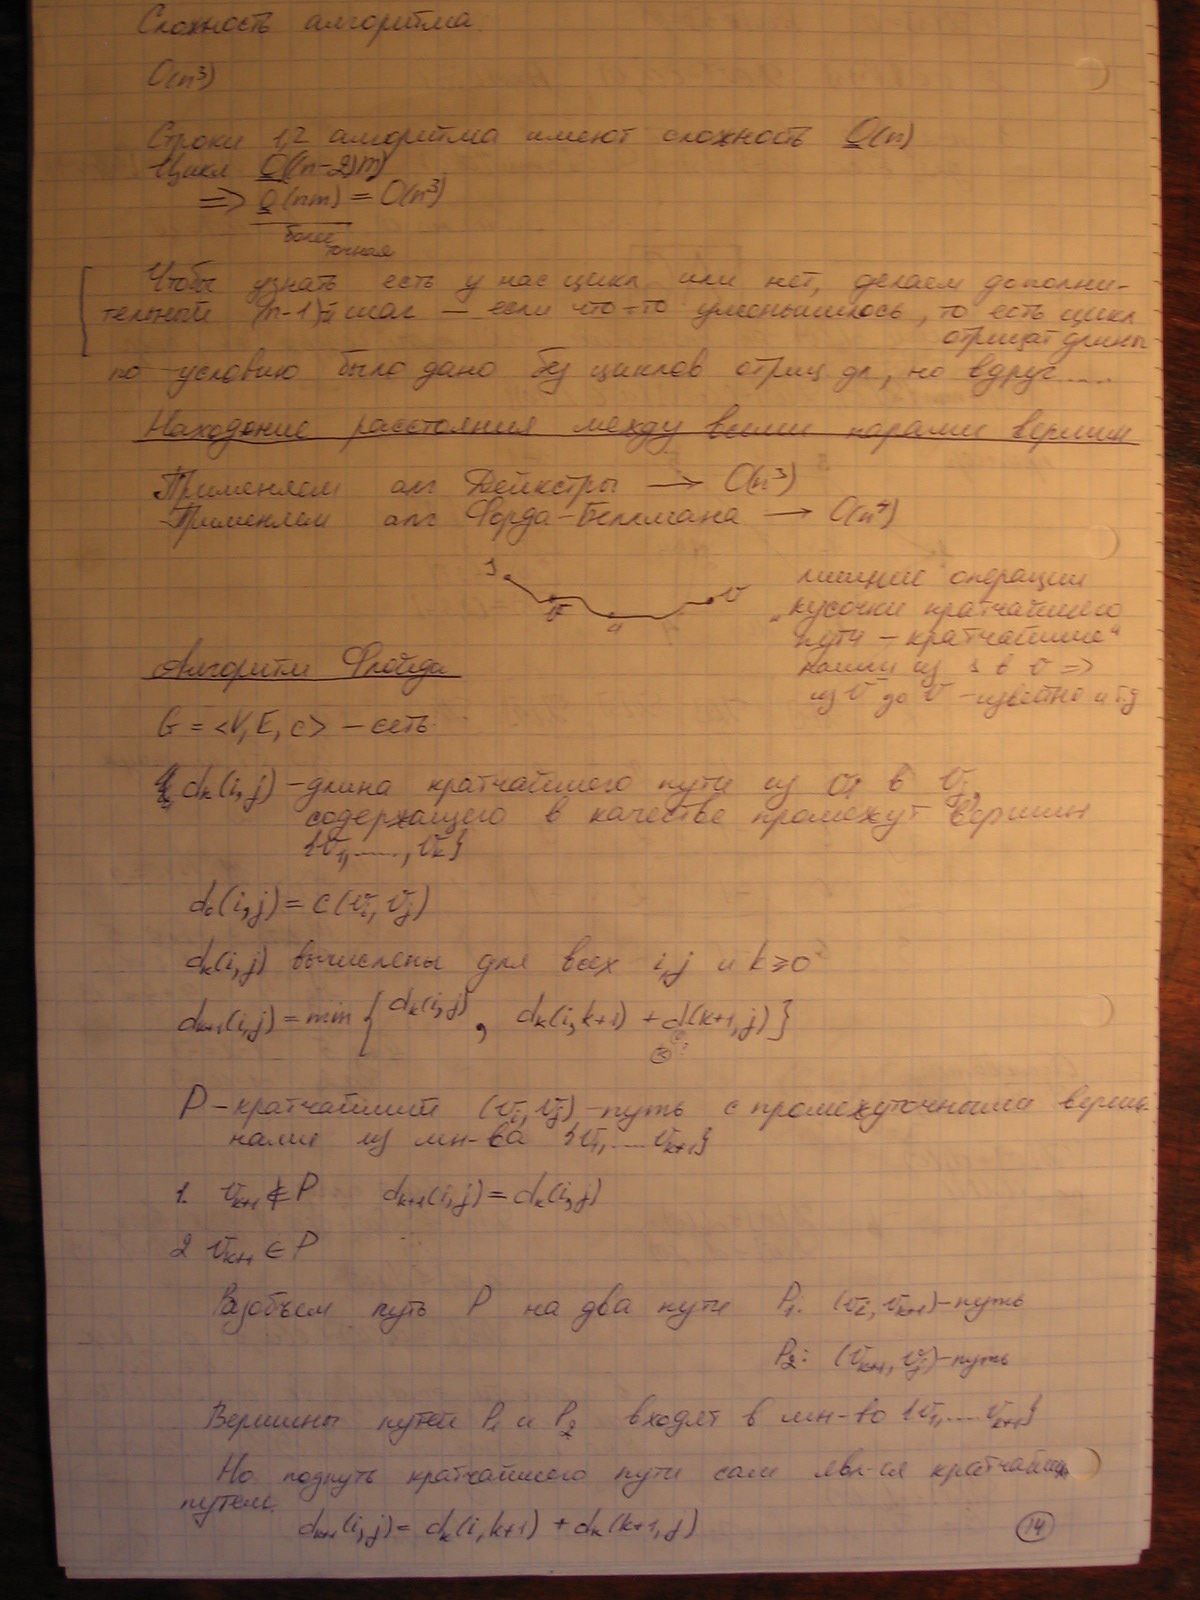 Сложность алгоритма
O(n³)
Строки 1,2 алгоритма имеют сложность O(n)
Цикл O((n-2)m)
=> O(nm) = O(n³)
более
точная
Чтобы узнать есть у нас цикл или нет, делаем дополни-
тельный (n-1)й шаг — если что-то уменьшилось, то есть цикл
отрицат длины
по условию было дано без циклов отриц дл, но вдруг.....
Находение расстояния между всеми парами вершин
Применяем алг Дейкстры → O(n³)
Применяем алг Форда-Беллмана → O(n⁴)
s
v
u
v
лишние операции
"кусочки кратчайшего
пути – кратчайшие"
нашли из s в v =>
из v до v – известно и т.д
Алгоритм Флойда
G = <V, E, c> – сеть
dk(i,j) – длина кратчайшего пути из vi в vj,
содержащего в качестве промежут вершин
{v1, ....., vk}
d0(i,j) = c(vi, vj)
dk(i,j) вычислены для всех i,j и k≥0
dk+1(i,j) = min { dk(i,j), dk(i,k+1) + d(k+1,j)}
P – кратчайший (vi, vj) – путь с промежуточными верши-
нами из мн-ва {v1, .... vk+1}
1. vk+1 ∉ P dk+1(i,j) = dk(i,j)
2 vk+1 ∈ P
Разобьем путь P на два пути P1: (vi, vk+1)-путь
P2: (vk+1, vj)-путь
Вершины путей P1 и P2 входят в мн-во {v1, ..... vk+1}
Но подпуть кратчайшего пути сам явл-ся кратчайшим
путем.
dk+1(i,j) = dk(i,k+1) + dk(k+1,j)
14